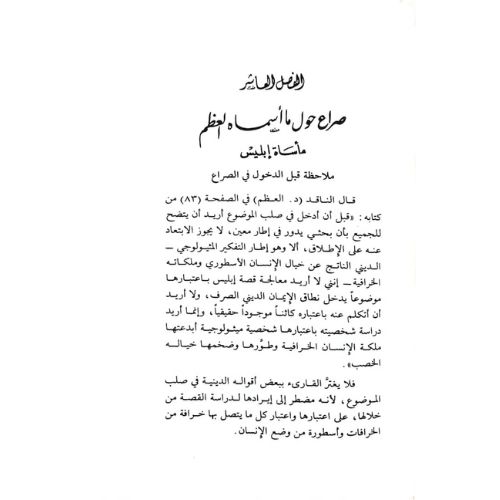 الفصل العاشر
صراع حول ما أسماه العظم
مأساة إبليس
ملاحظة قبل الدخول في الصراع
قال الناقد (د. العظم) في الصفحة (٨٣) من
كتابه: «قبل أن أدخل في صلب الموضوع أريد أن يتضح
للجميع بأن بحثي يدور في إطار معين، لا يجوز الابتعاد
عنه على الإطلاق، ألا وهو إطار التفكير المثيولوجي –
الديني الناتج عن خيال الإنسان الأسطوري وملكاته
الخرافية – إنني لا أريد معالجة قصة إبليس باعتبارها
موضوعاً يدخل نطاق الإيمان الديني الصرف، ولا أريد
أن أتكلم عنه باعتباره كائناً موجوداً حقيقياً، وإنما أريد
دراسة شخصيته باعتبارها شخصية ميثولوجية أبدعتها
ملكة الإنسان الخرافية وطوّرها وضخمها خياله
الخصب».
فلا يغترَّ القارىء ببعض أقواله الدينية في صلب
الموضوع، لأنه مضطر إلى إيرادها لدراسة القصة من
خلالها، على اعتبارها واعتبار كل ما يتصل بها خرافة من
الخرافات وأسطورة من وضع الإنسان.